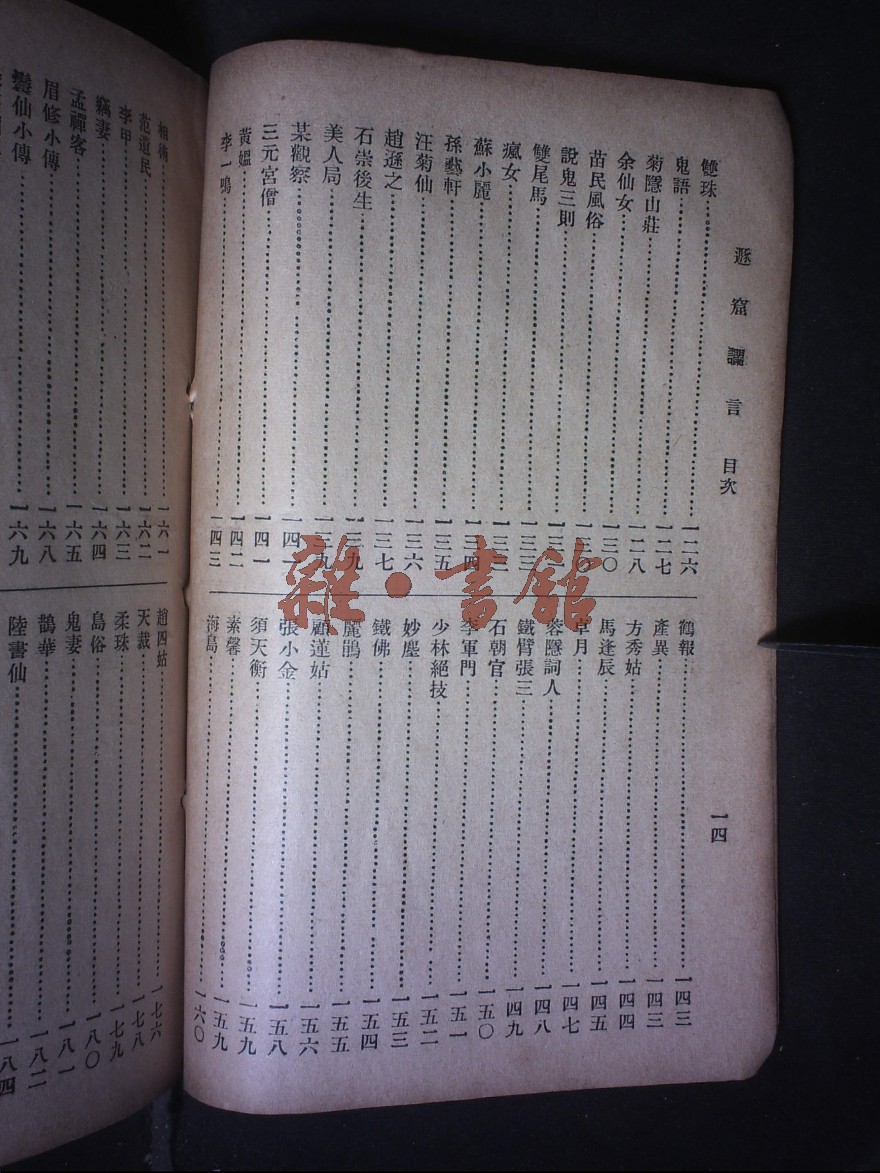 遯窟讕言 目次
一四
雙珠 一二六
鬼語 一二七
菊隱山莊 一二八
余仙女 一三〇
苗民風俗 一三〇
說鬼三則
雙尾馬 一三三
瘋女 一三三
蘇小麗 一三四
孫藝軒 一三五
汪菊仙 一三六
趙遜之 一三七
石崇後生 一三九
美人局 一三九
某觀察 一四一
三元宮僧 一四一
黃媼 一四二
李一鳴 一四三
鶴報 一四三
產異 一四三
方秀姑 一四四
馬逢辰 一四五
卓月 一四七
蓉隱詞人 一四八
鐵臂張三 一四九
石朝官 一五〇
李軍門 一五一
少林絕技 一五二
妙塵 一五三
鐵佛 一五四
麗鵑 一五五
顧蓮姑 一五六
張小金 一五八
須天衡 一五九
素馨 一五九
海島 一六〇
相術 一六一
范遺民 一六二
李甲 一六三
竊妻 一六四
孟禪客 一六五
眉修小傳 一六八
鬘仙小傳 一六九
趙四姑 一七六
天裁 一七八
柔珠 一七九
島俗 一八〇
鬼妻 一八一
鵲華 一八二
陸書仙 一八四
雜·書館